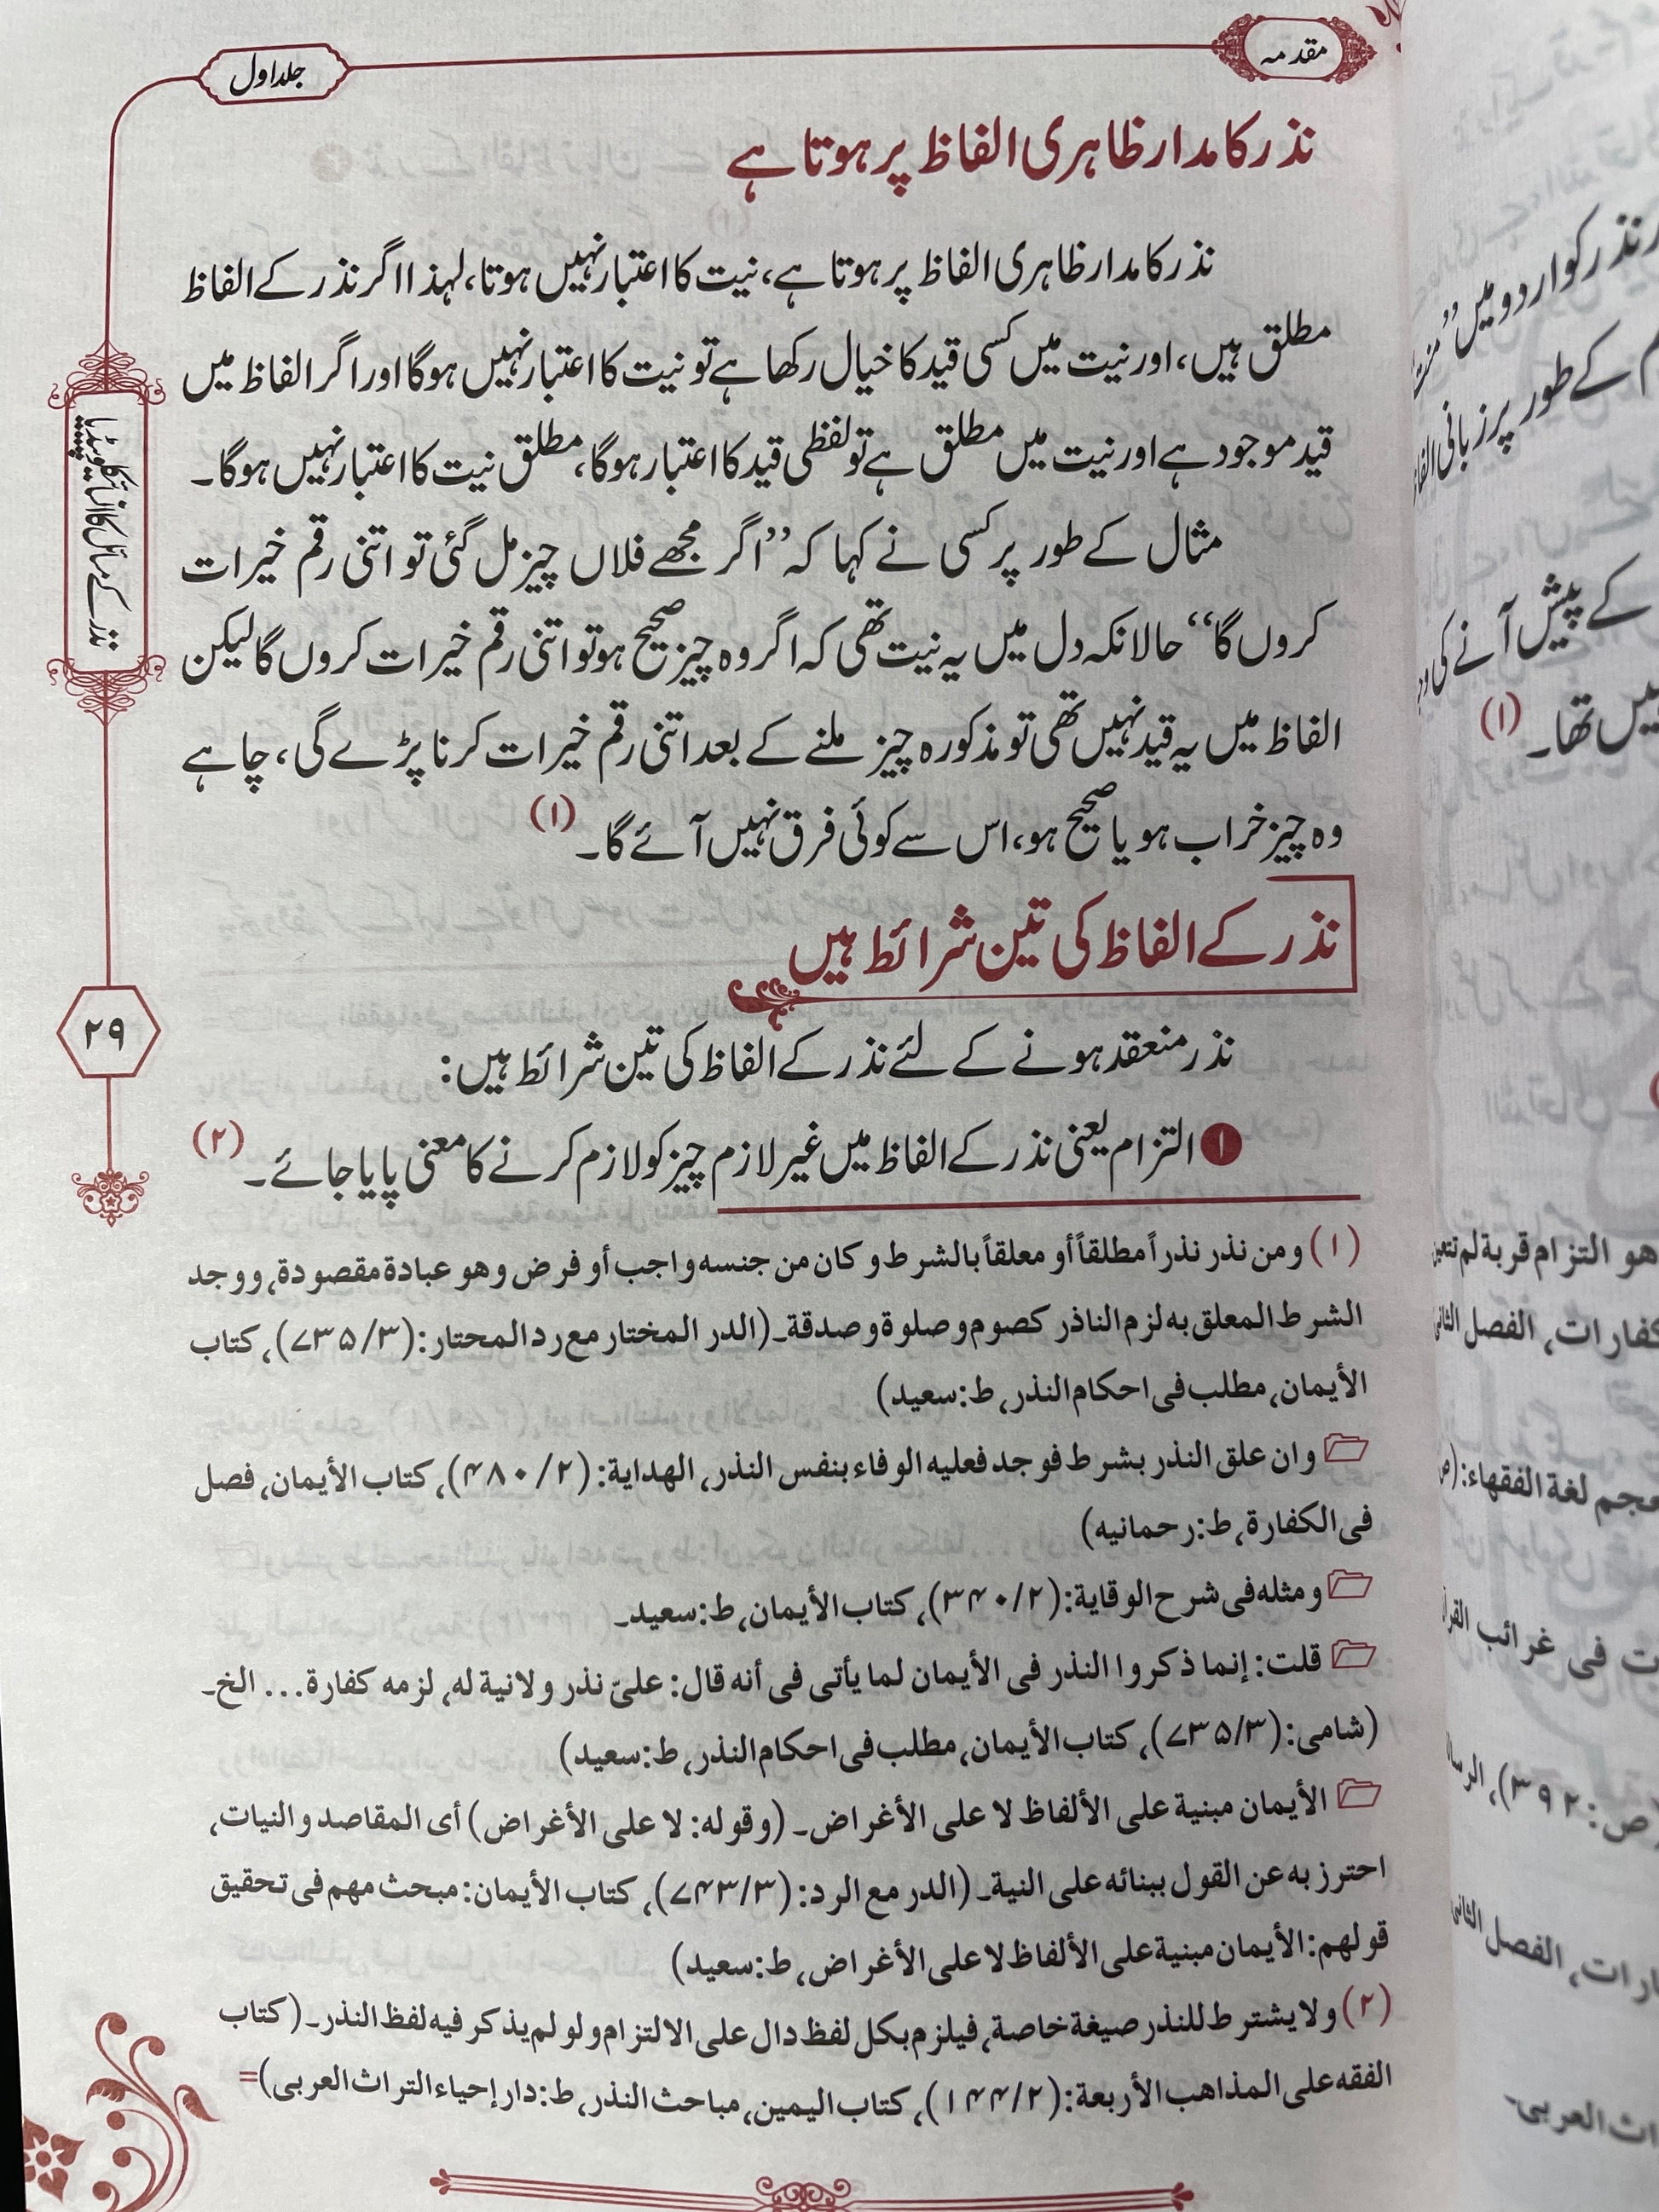 مقدمہ
جلد اول
نذر کا مدار ظاہری الفاظ پر ہوتا ہے
نذر کا مدار ظاہری الفاظ پر ہوتا ہے، نیت کا اعتبار نہیں ہوتا، لہذا اگر نذر کے الفاظ
مطلق ہیں، اور نیت میں کسی قید کا خیال رکھا ہے تو نیت کا اعتبار نہیں ہوگا اور اگر الفاظ میں
قید موجود ہے اور نیت میں مطلق ہے تو لفظی قید کا اعتبار ہوگا، مطلق نیت کا اعتبار نہیں ہوگا۔
مثال کے طور پر کسی نے کہا کہ ’’اگر مجھے فلاں چیز مل گئی تو اتنی رقم خیرات
کروں گا‘‘ حالانکہ دل میں یہ نیت تھی کہ اگر وہ چیز صحیح ہو تو اتنی رقم خیرات کروں گا لیکن
الفاظ میں یہ قید نہیں تھی تو مذکورہ چیز ملنے کے بعد اتنی رقم خیرات کرنا پڑے گی، چاہے
وہ چیز خراب ہو یا صحیح ہو، اس سے کوئی فرق نہیں آئے گا۔ (۱)
نذر کے الفاظ کی تین شرائط ہیں
نذر منعقد ہونے کے لئے نذر کے الفاظ کی تین شرائط ہیں:
۱ التزام یعنی نذر کے الفاظ میں غیر لازم چیز کو لازم کرنے کا معنی پایا جائے۔ (۲)
(۱) ومن نذر نذراً مطلقاً أو معلقاً بالشرط وكان من جنسه واجب أو فرض وهو عبادة مقصودة، ووجد
الشرط المعلق به لزم الناذر كصوم وصلوة وصدقة۔ (الدر المختار مع رد المحتار: (۳/۷۳۵)، كتاب
الأيمان، مطلب فى احكام النذر، ط: سعيد)
وان علق النذر بشرط فوجد فعليه الوفاء بنفس النذر، الهداية: (۲/۴۸۰)، كتاب الأيمان، فصل
فى الكفارة، ط: رحمانيه)
ومثله فى شرح الوقاية: (۲/۳۴۰)، كتاب الأيمان، ط: سعيد۔
قلت: إنما ذكروا النذر فى الأيمان لما يأتى فى أنه قال: علىّ نذر ولانية له، لزمه كفارة... الخ۔
(شامى: (۳/۷۳۵)، كتاب الأيمان، مطلب فى احكام النذر، ط: سعيد)
الأيمان مبنية على الألفاظ لا على الأغراض۔ (وقوله: لا على الأغراض) أى المقاصد والنيات،
احترز به عن القول ببنائه على النية۔ (الدر مع الرد: (۳/۷۴۳)، كتاب الأيمان: مبحث مهم فى تحقيق
قولهم: الأيمان مبنية على الألفاظ لا على الأغراض، ط: سعيد)
(۲) ولا يشترط للنذر صيغة خاصة، فيلزم بكل لفظ دال على الالتزام ولو لم يذكر فيه لفظ النذر۔ (كتاب
الفقه على المذاهب الأربعة: (۲/۱۴۴)، كتاب اليمين، مباحث النذر، ط: دار إحياء التراث العربى)=
نذر کے مسائل کا انسائیکلوپیڈیا
۲۹
نذر کو اردو میں
کے طور پر زبانی
کے پیش آنے کی
نہیں تھا۔ (۱)
هو التزام قربة لم تتعين
كفارات، الفصل الثانى
معجم لغة الفقهاء:
فى غرائب القرآن
(ص: ۳۹۲)،
الفصل الثانى
العربى۔